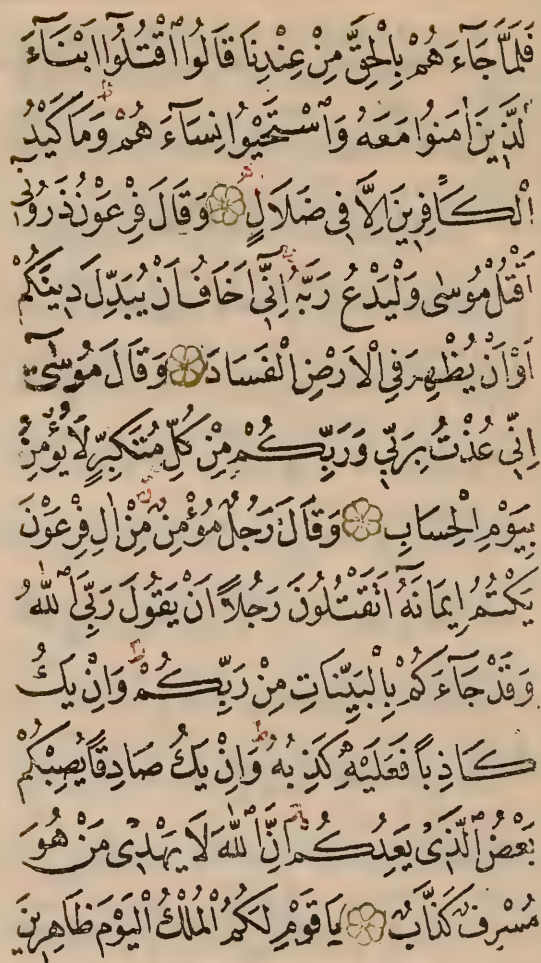 فَلَمَّا جَاءَهُمْ بِالْحَقِّ مِنْ عِنْدِنَا قَالُوا اقْتُلُوا اَبْنَاءَ
الَّذِينَ اٰمَنُوا مَعَهُ وَاسْتَحْيُوا نِسَاءَهُمْ وَمَا كَيْدُ
الْكَافِرِينَ اِلَّا فِي ضَلَالٍ وَقَالَ فِرْعَوْنُ ذَرُونِي
اَقْتُلْ مُوسٰى وَلْيَدْعُ رَبَّهُ اِنِّي اَخَافُ اَنْ يُبَدِّلَ دِينَكُمْ
اَوْ اَنْ يُظْهِرَ فِي الْاَرْضِ الْفَسَادَ وَقَالَ مُوسٰى
اِنِّي عُذْتُ بِرَبِّي وَرَبِّكُمْ مِنْ كُلِّ مُتَكَبِّرٍ لَا يُؤْمِنُ
بِيَوْمِ الْحِسَابِ وَقَالَ رَجُلٌ مُؤْمِنٌ مِنْ اٰلِ فِرْعَوْنَ
يَكْتُمُ اِيمَانَهُ اَتَقْتُلُونَ رَجُلًا اَنْ يَقُولَ رَبِّيَ اللّٰهُ
وَقَدْ جَاءَكُمْ بِالْبَيِّنَاتِ مِنْ رَبِّكُمْ وَاِنْ يَكُ
كَاذِبًا فَعَلَيْهِ كَذِبُهُ وَاِنْ يَكُ صَادِقًا يُصِبْكُمْ
بَعْضُ الَّذِي يَعِدُكُمْ اِنَّ اللّٰهَ لَا يَهْدِى مَنْ هُوَ
مُسْرِفٌ كَذَّابٌ يَا قَوْمِ لَكُمُ الْمُلْكُ الْيَوْمَ ظَاهِرِينَ